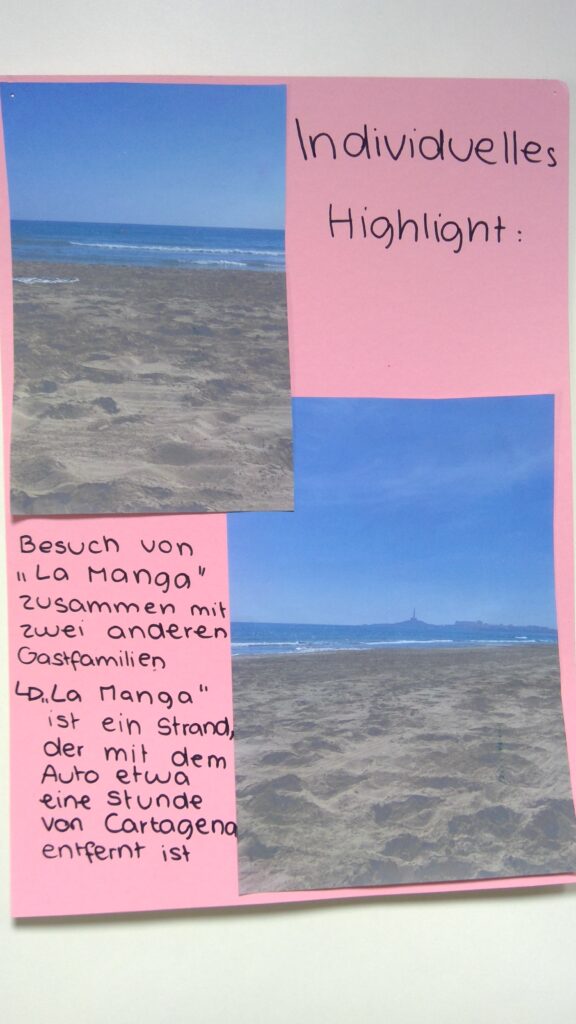 Individuelles
Highlight:
Besuch von
„La Manga"
zusammen mit
zwei anderen
Gastfamilien
↳„La Manga"
ist ein Strand,
der mit dem
Auto etwa
eine Stunde
von Cartagena
entfernt ist